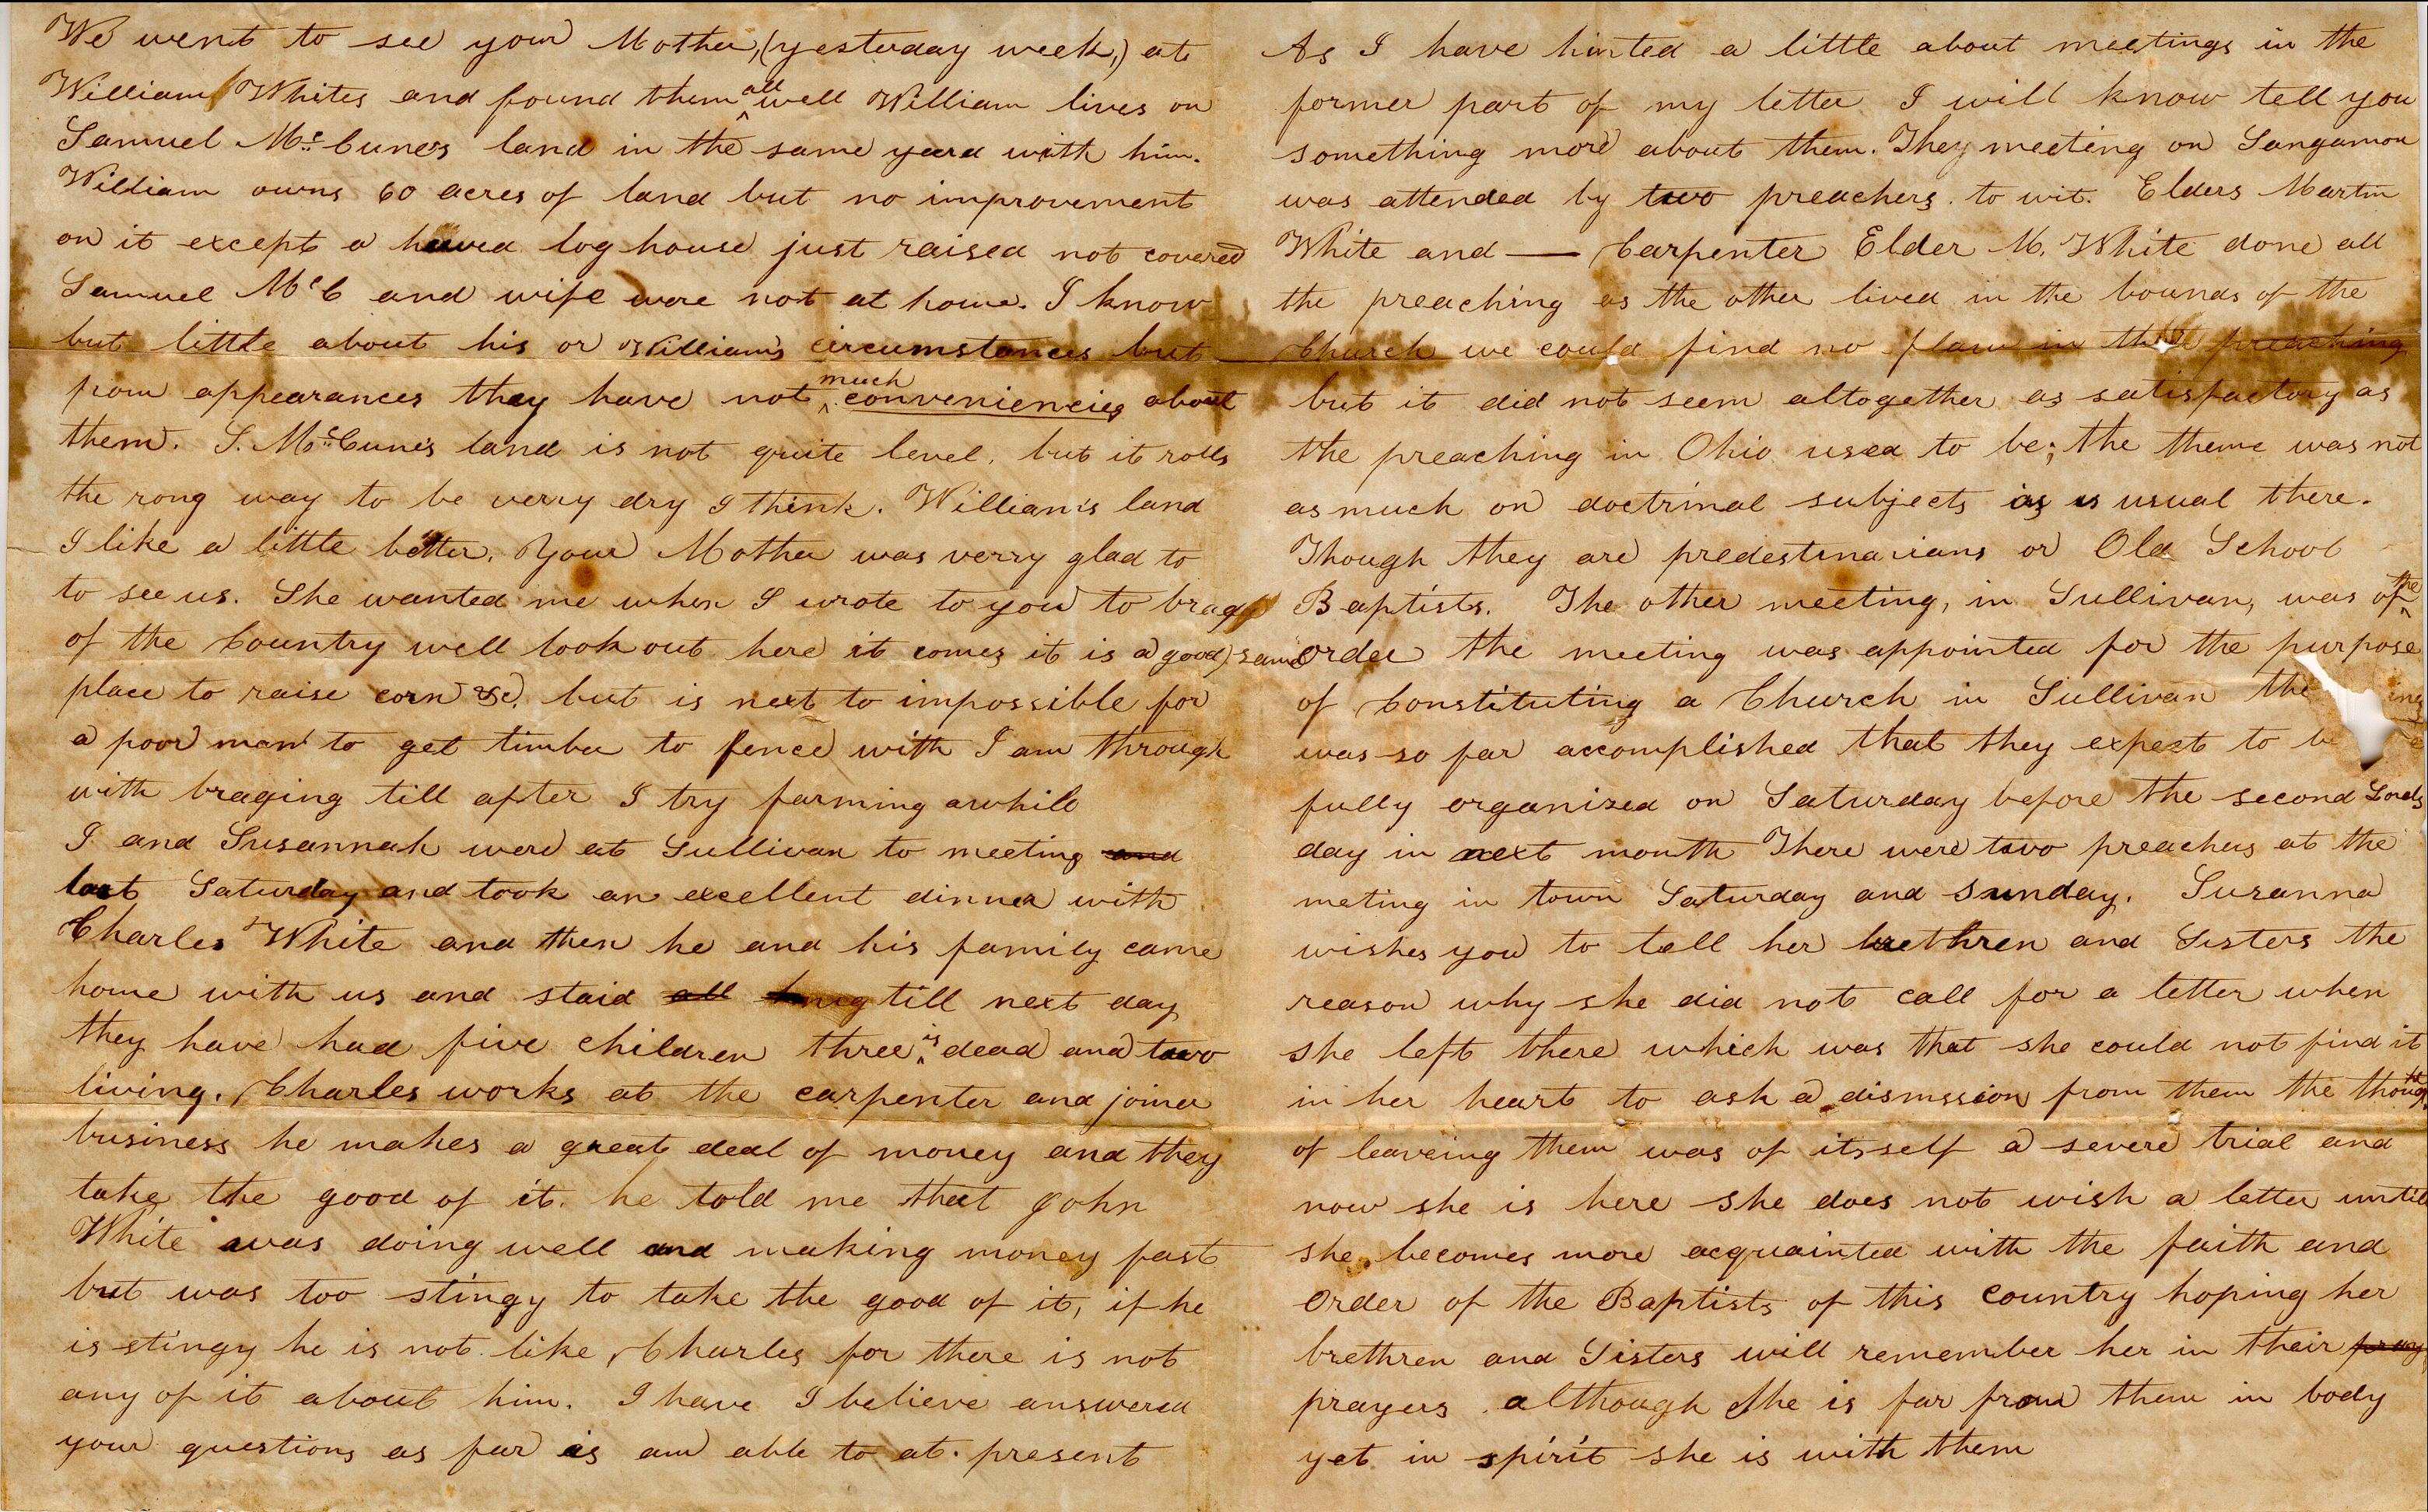 We went to see your Mother, (yesterday week,) at
William Whites and found them all well William lives on
Samuel Mc. Cune's land in the same yard with him.
William owns 60 acres of land but no improvement
on it except a hewed log house just raised not covered
Samuel McC and wife were not at home. I know
but little about his or William's circumstances but
from appearances they have not much conveniencies about
them. S. Mc.Cune's land is not quite level, but it rolls
the rong way to be verry dry I think. William's land
I like a little better. Your Mother was verry glad to
to see us. She wanted me when I wrote to you to bragg
of the Country well look out here it comes it is a good
place to raise corn &c, but is next to impossible for
a poor man to get timber to fence with I am through
with braging till after I try farming awhile
I and Susannah were at Sullivan to meeting and
last Saturday and took an excellent dinner with
Charles White and then he and his family came
home with us and staid all till next day
they have had five children three is dead and two
living. Charles works at the carpenter and joiner
business he makes a great deal of money and they
take the good of it. he told me that John
White was doing well and making money fast
but was too stingy to take the good of it, if he
is stingy he is not like Charles for there is not
any of it about him. I have I believe answered
your questions as far as am able to at present
As I have hinted a little about meetings in the
former part of my letter I will know tell you
something more about them. They meeting on Sangamon
was attended by two preachers. to wit. Elders Martin
White and — Carpenter Elder M. White done all
the preaching as the other lived in the bounds of the
Church we could find no flaw in their preaching
but it did not seem altogether as satisfactory as
the preaching in Ohio used to be; the theme was not
as much on doctrinal subjects as is usual there.
Though they are predestinarians or Old School
Baptists. The other meeting, in Sullivan, was of the
same order the meeting was appointed for the purpose
of Constituting a Church in Sullivan the ing
was so far accomplished that they expect to be
fully organized on Saturday before the second Lords
day in next month There were two preachers at the
meting in town Saturday and Sunday. Susanna
wishes you to tell her brethren and Sisters the
reason why she did not call for a letter when
she left there which was that she could not find it
in her heart to ask a dismssion from them the thought
of leaveing them was of itsself a severe trial and
now she is here she does not wish a letter until
she becomes more acquainted with the faith and
order of the Baptists of this Country hoping her
brethren and Sisters will remember her in their pray
prayers although she is far from them in body
yet in spirit she is with them